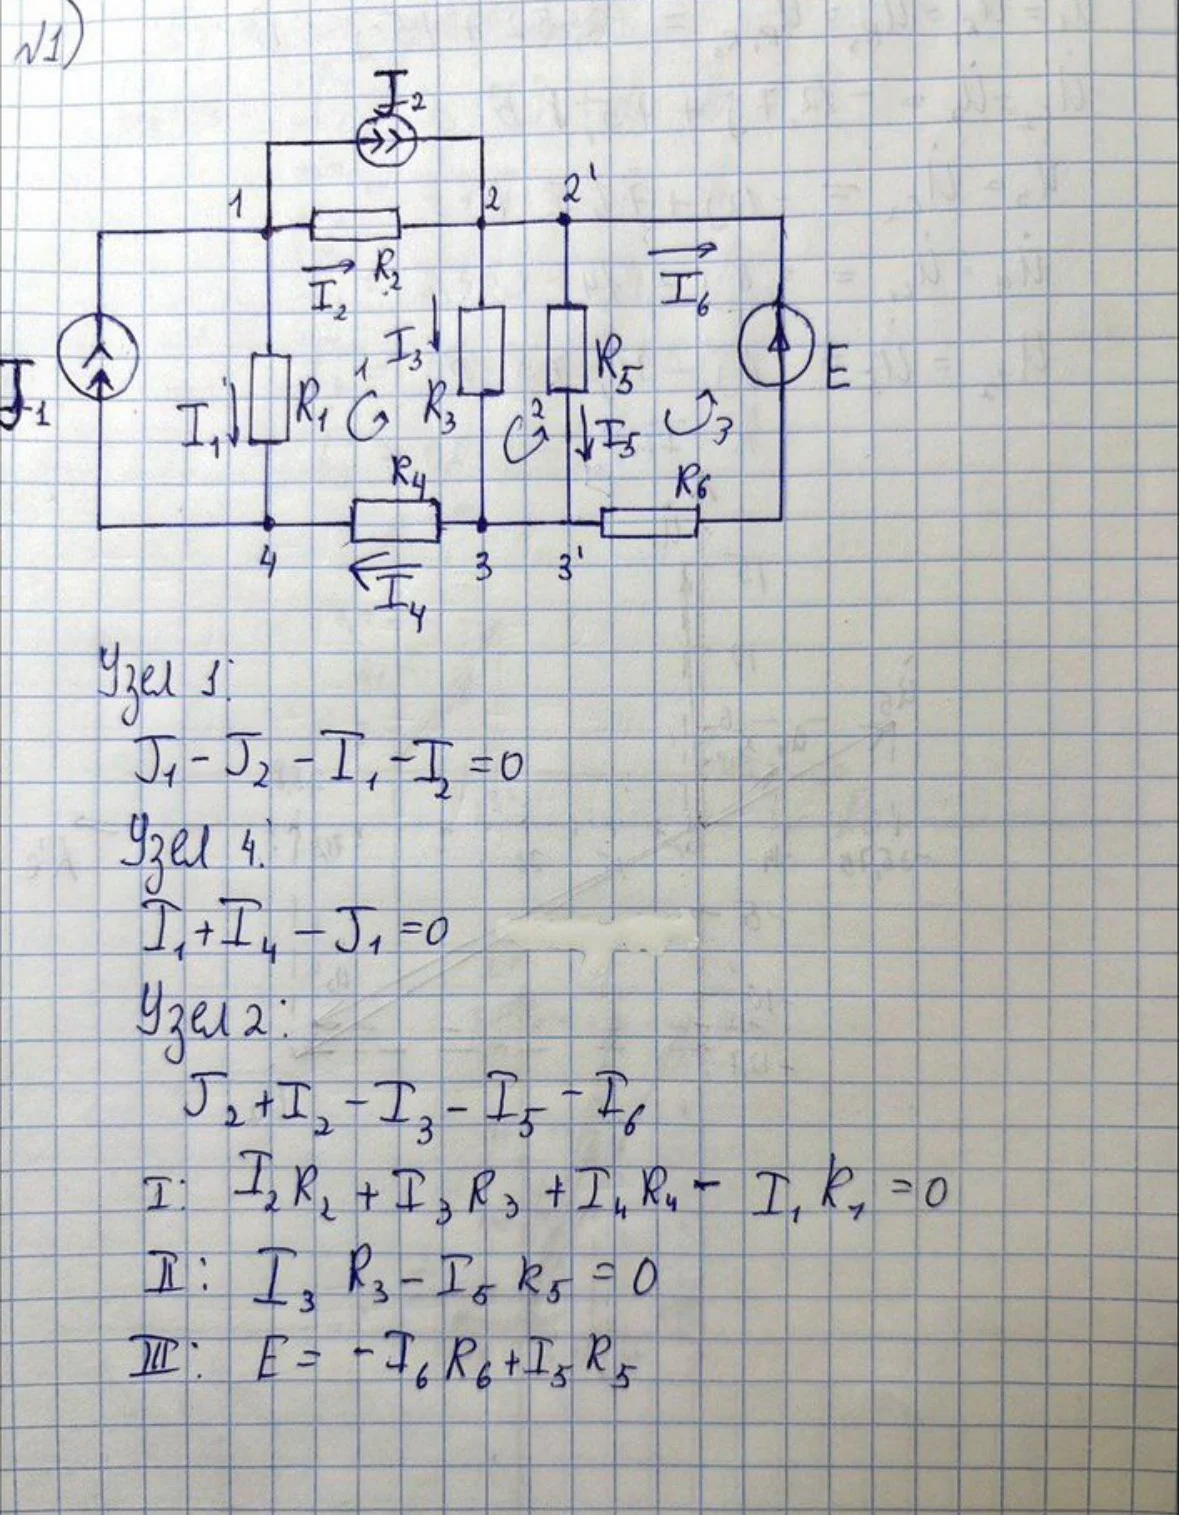 №1)
J2
1
2
2'
R2
I2
I6
I3
R5
E
J1
I1
R1
1
R3
2
I5
3
R4
R6
4
3
3'
I4
Узел 1:
J1 - J2 - I1 - I2 = 0
Узел 4:
I1 + I4 - J1 = 0
Узел 2:
J2 + I2 - I3 - I5 - I6
I: I2 R2 + I3 R3 + I4 R4 - I1 R1 = 0
II: I3 R3 - I5 R5 = 0
III: E = - I6 R6 + I5 R5